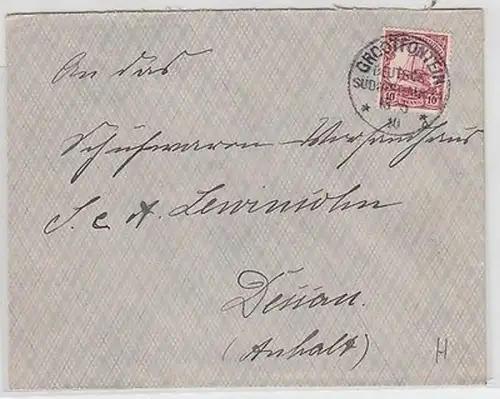 An das
Schuhwaren-Versandhaus
S. & A. Lewinsohn
Dessau.
(Anhalt)
H
GROOTFONTEIN
DEUTSCH-
SÜDWESTAFRIKA
10
10 10